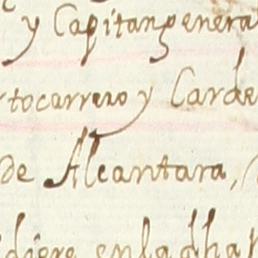 y Capitan genera
rtocarrero y Carde
de Alcantara,
diere en la dha